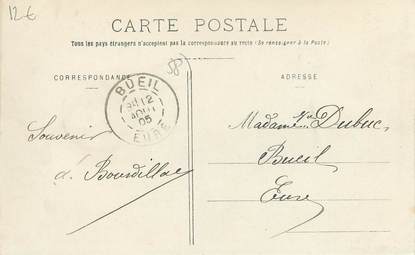 12 €
CARTE POSTALE
Tous les pays étrangers n'acceptent pas la correspondance au recto (Se renseigner à la Poste)
CORRESPONDANCE
ADRESSE
BUEIL
12
AOUT
05
EURE
Souvenir
d. Bourdillac
Madame Vve Dubuc,
Bueil
Eure